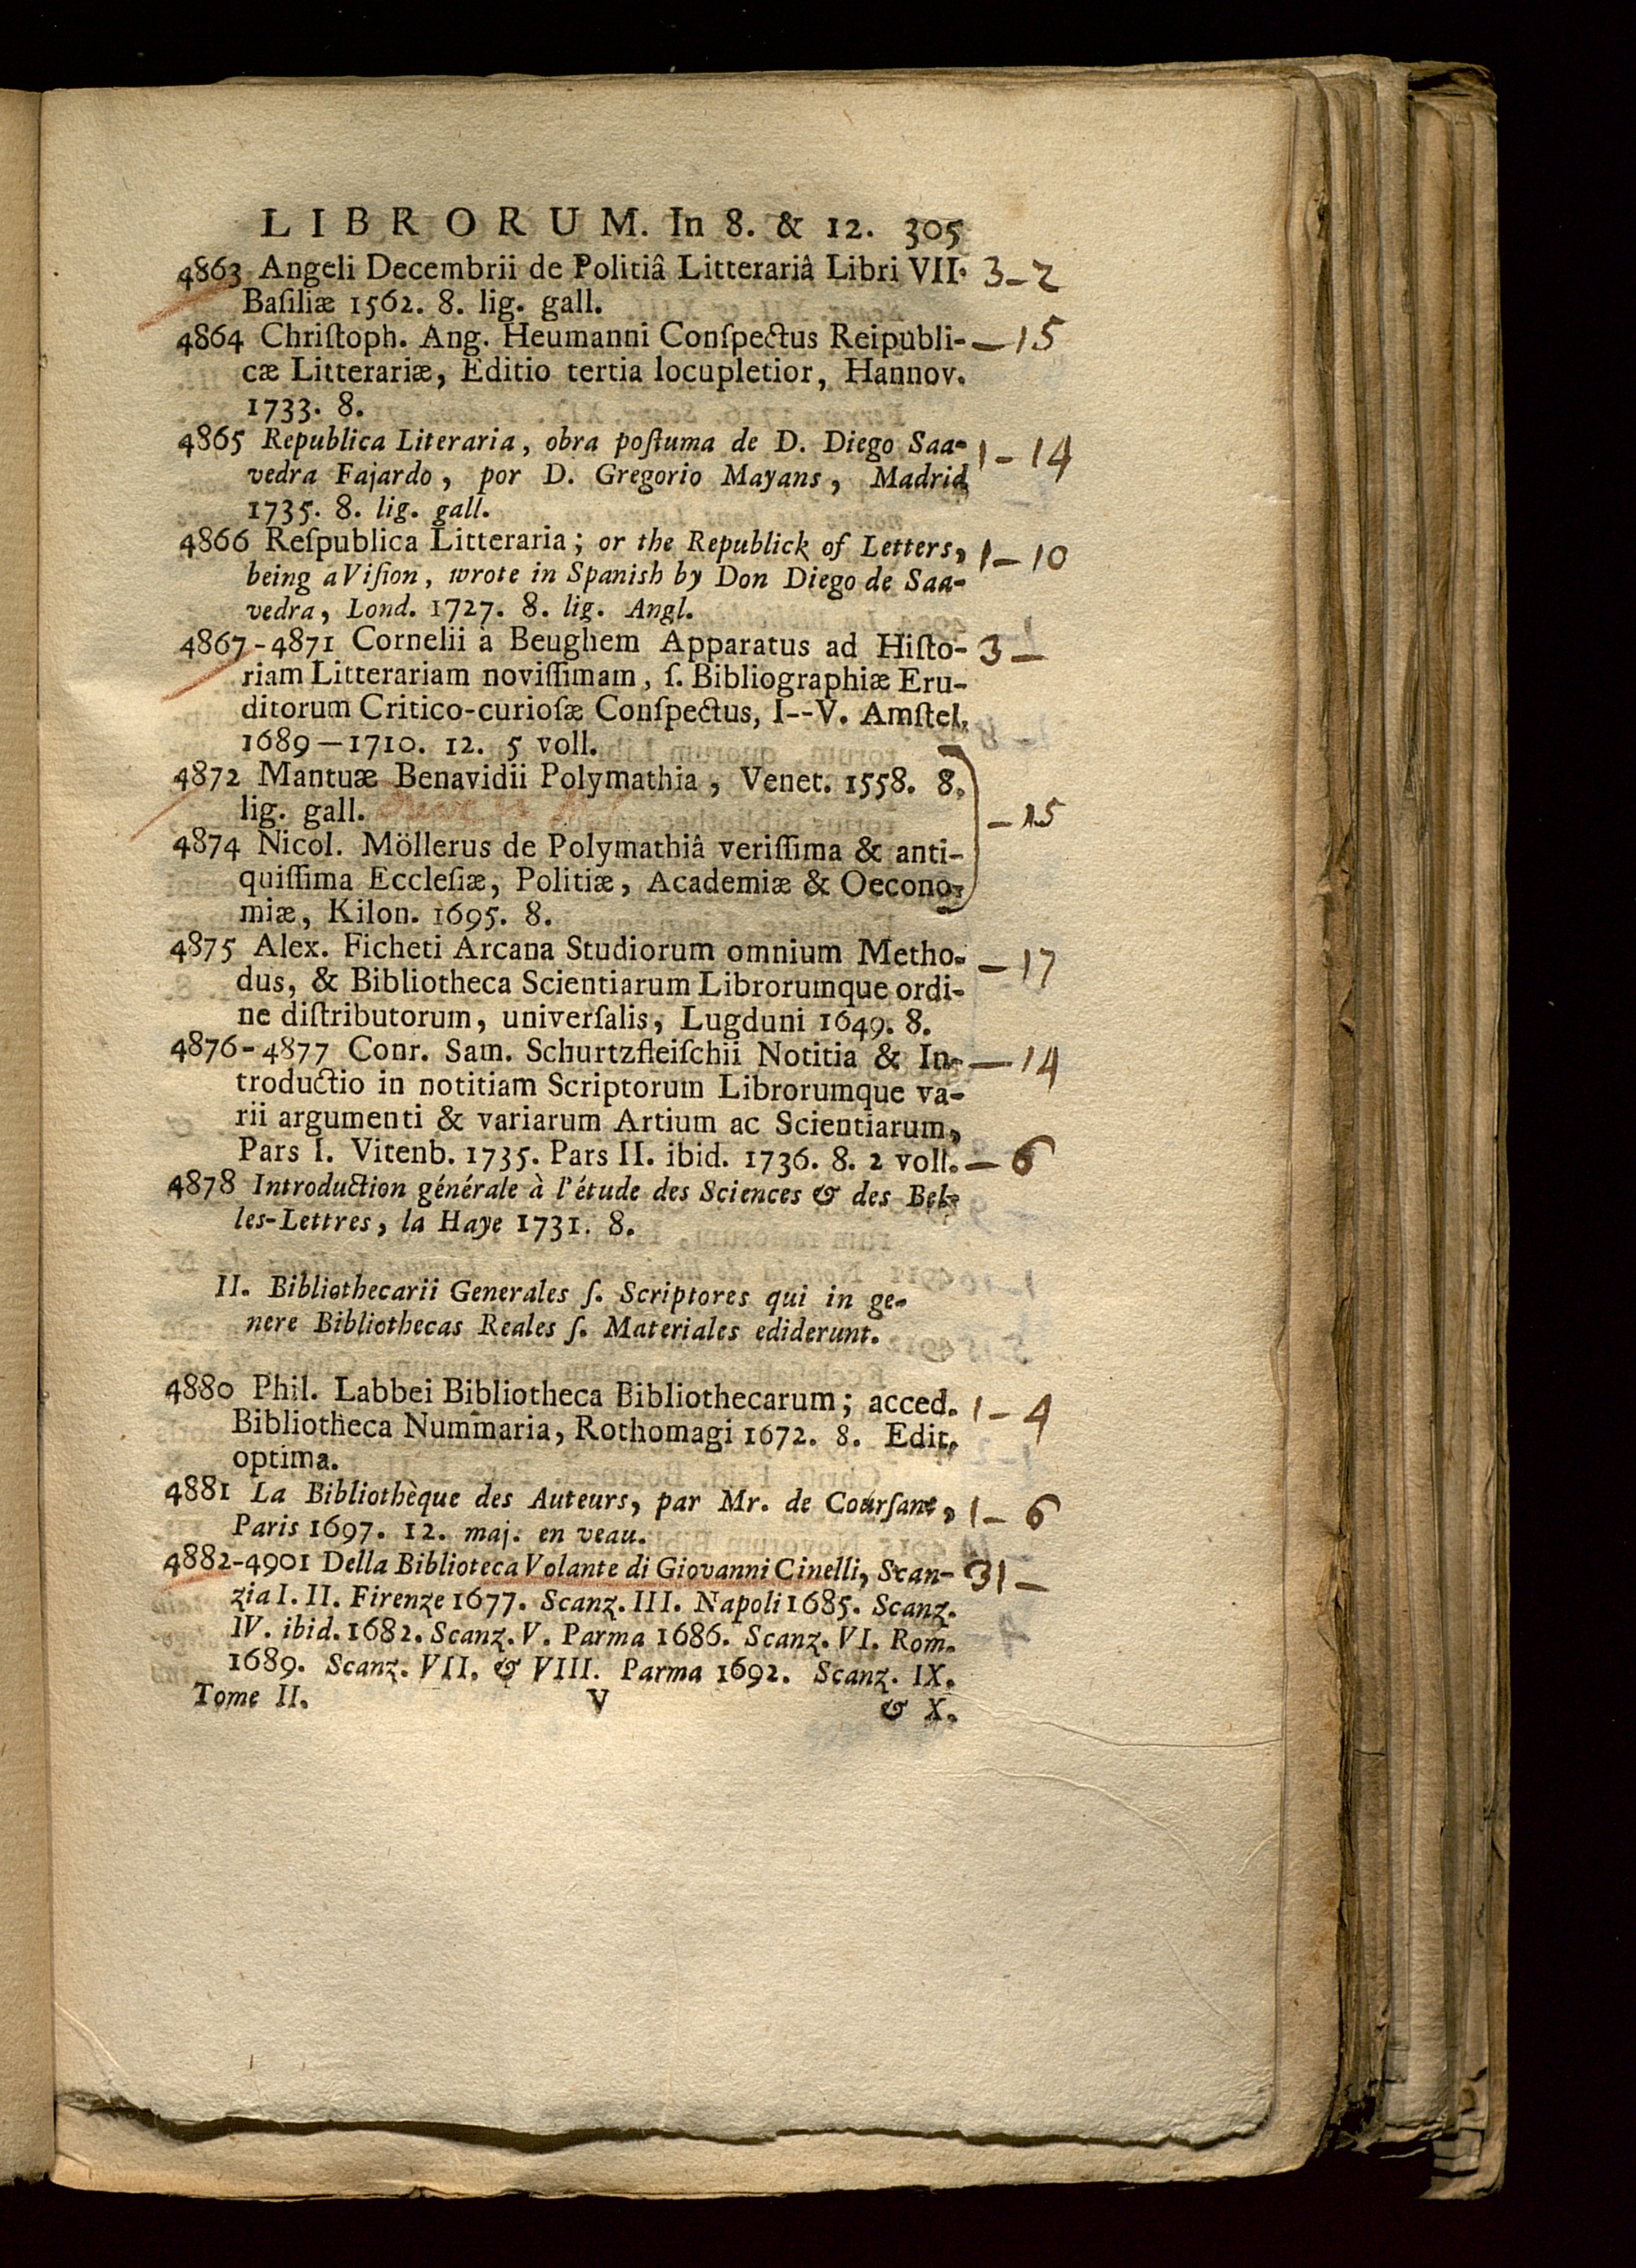 LIBRORUM. In 8. & 12. 305
4863 Angeli Decembrii de Politiâ Litterariâ Libri VII. 3-2
Baſiliæ 1562. 8. lig. gall.
4864 Chriſtoph. Ang. Heumanni Conſpectus Reipubli- —15
cæ Litterariæ, Editio tertia locupletior, Hannov.
1733. 8.
4865 Republica Literaria, obra poſtuma de D. Diego Saa- 1-14
vedra Fajardo, por D. Gregorio Mayans, Madrid
1735. 8. lig. gall.
4866 Reſpublica Litteraria; or the Republick of Letters, 1-10
being a Viſion, wrote in Spanish by Don Diego de Saa-
vedra, Lond. 1727. 8. lig. Angl.
4867-4871 Cornelii à Beughem Apparatus ad Hiſto- 3—
riam Litterariam noviſſimam, ſ. Bibliographiæ Eru-
ditorum Critico-curioſæ Conſpectus, I--V. Amſtel.
1689—1710. 12. 5 voll.
4872 Mantuæ Benavidii Polymathia, Venet. 1558. 8.
lig. gall. —15
4874 Nicol. Möllerus de Polymathiâ veriſſima & anti-
quiſſima Eccleſiæ, Politiæ, Academiæ & Oecono-
miæ, Kilon. 1695. 8.
4875 Alex. Ficheti Arcana Studiorum omnium Metho- —17
dus, & Bibliotheca Scientiarum Librorumque ordi-
ne diſtributorum, univerſalis, Lugduni 1649. 8.
4876-4877 Conr. Sam. Schurtzfleiſchii Notitia & In- —14
troductio in notitiam Scriptorum Librorumque va-
rii argumenti & variarum Artium ac Scientiarum,
Pars I. Vitenb. 1735. Pars II. ibid. 1736. 8. 2 voll. —6
4878 Introduction générale à l'étude des Sciences & des Bel-
les-Lettres, la Haye 1731. 8.
II. Bibliothecarii Generales ſ. Scriptores qui in ge-
nere Bibliothecas Reales ſ. Materiales ediderunt.
4880 Phil. Labbei Bibliotheca Bibliothecarum; acced. 1-4
Bibliotheca Nummaria, Rothomagi 1672. 8. Edit.
optima.
4881 La Bibliothèque des Auteurs, par Mr. de Courſant, 1-6
Paris 1697. 12. maj. en veau.
4882-4901 Della Biblioteca Volante di Giovanni Cinelli, Scan- 31—
zia I. II. Firenze 1677. Scanz. III. Napoli 1685. Scanz.
IV. ibid. 1682. Scanz. V. Parma 1686. Scanz. VI. Rom.
1689. Scanz. VII. & VIII. Parma 1692. Scanz. IX.
Tome II. V & X.